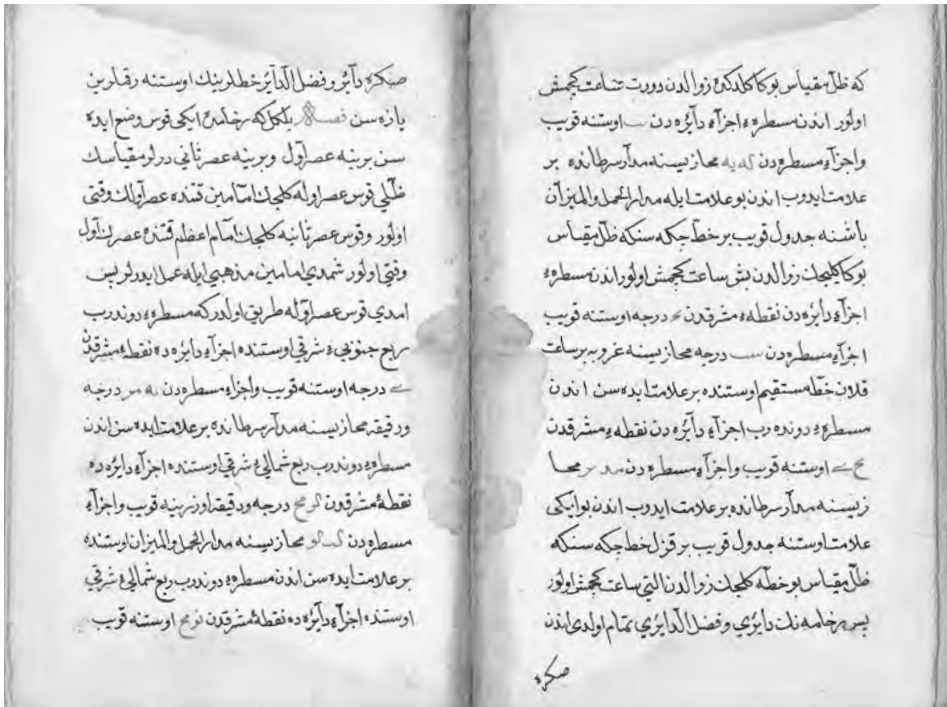 که ظل مقیاس بوکا کلدکده زوالدن دورت ساعت کچمش
اولور اندن مسطره‌ء اجزآء دآیره دن اوستنه قویب
واجزآء مسطره دن محازیسنه مدآر سرطانده بر
علامت ایدوب اندن بو علامت ایله مدار الحمل والمیزآن
باشنه جدول قویب بر خط چکه سنکه ظل مقیاس
بوکا کلیجك زوالدن بش ساعت کچمش اولور اندن مسطره‌ء
اجزآء دآیره دن نقطه‌ء مشرقدن درجه اوستنه قویب
اجزآء مسطره دن درجه محازیسنه غروبه بر ساعت
قلان خط مستقیم اوستنده بر علامت ایده سن اندن
مسطره‌ء دونده رب اجزآء دآیره دن نقطه‌ء مشرقدن
اوستنه قویب واجزآء مسطره دن محا
زیسنه مدآر سرطانده بر علامت ایدوب اندن بو ایکی
علامت اوستنه جدول قویب بر قزل خط چکه سنکه
ظل مقیاس بو خطه کلیجك زوالدن التی ساعت کچمش اولور
پس رخامه نك دآیری وفضل الدآیری تمام اولدی اندن
صکره
صکره دآیر وفضل الدآیر خطلرینك اوستنه رقملرین
یازه سن فصل بلکل که رخامده ایکی قوس وضع ایده
سن برینه عصر اول وبرینه عصر ثانی درلر مقیاسك
ظلی قوس عصر اوله کلیجك امامین قتنده عصر اولك وقتی
اولور وقوس عصر ثانیه کلیجك امام اعظم قتنده عصرك اول
وقتی اولور شمدی امامین مذهبی ایله عمل ایدرلر پس
امدی قوس عصر اوله طریق اولدر که مسطره‌ء دوندرب
ربع جنوبی‌ء شرقی اوستنده اجزآء دآیره ده نقطه‌ء مشرقدن
درجه اوستنه قویب واجزآء مسطره دن درجه
ودقیقه محازیسنه مدآر سرطانده بر علامت ایده سن اندن
مسطره‌ء دوندرب ربع شمالی‌ء شرقی اوستنده اجزآء دآیره ده
نقطه‌ء مشرقدن درجه ودقیقه اوزرینه قویب واجزآء
مسطره دن محازیسنه مدار الحمل والمیزان اوستنده
بر علامت ایده سن اندن مسطره‌ء دوندرب ربع شمالی‌ء شرقی
اوستنده اجزآء دآیره ده نقطه‌ء مشرقدن اوستنه قویب